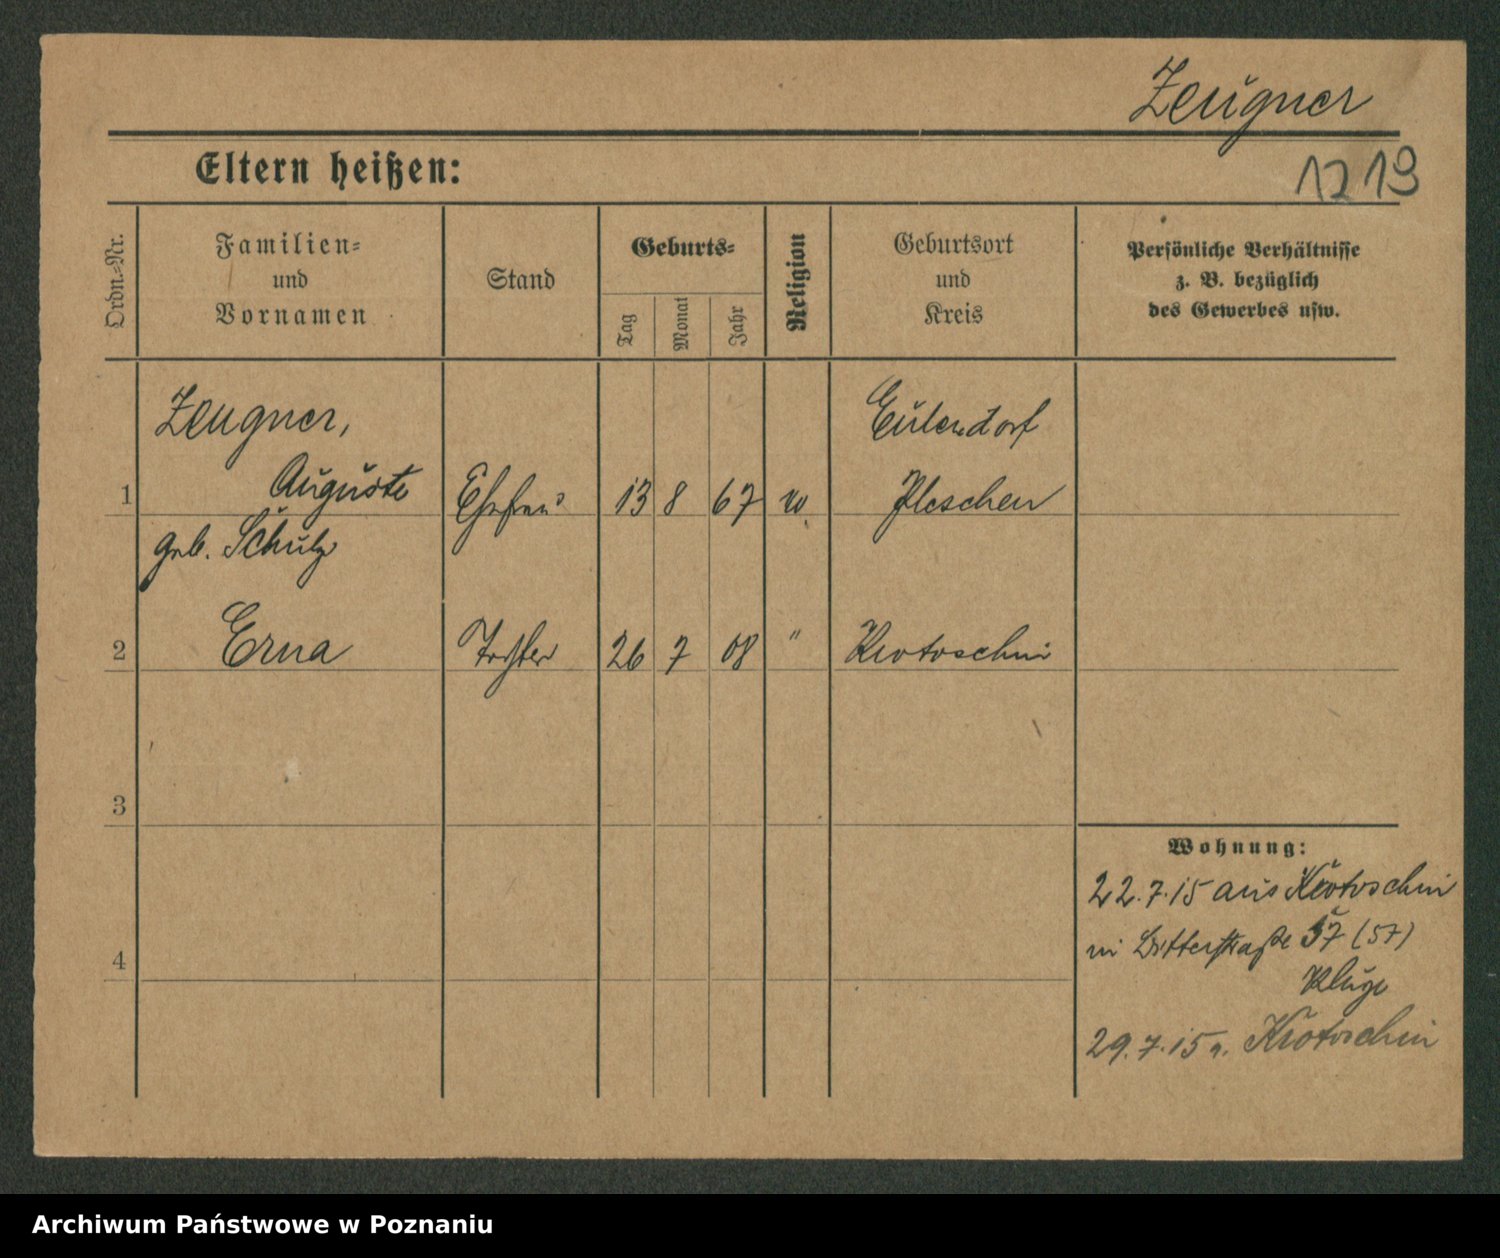 Zeugner
1219
Eltern heißen:
Ordn.-Nr.
Familien-
und
Vornamen
Stand
Geburts-
Tag
Monat
Jahr
Religion
Geburtsort
und
Kreis
Persönliche Verhältnisse
z. B. bezüglich
des Gewerbes usw.
Zeugner,
Eulendorf
1 Auguste Ehefrau 13 8 67 Pleschen
geb. Schulz
2 Erna Tochter 26 7 08 " Krotoschin
3
Wohnung:
22.7.15 aus Krotoschin
in 37 (57)
4
Kluge
29.7.15 n. Krotoschin
Archiwum Państwowe w Poznaniu